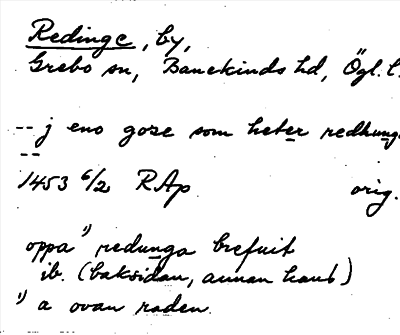 Redinge, by,
Grebo sn, Bankekinds hd, Ögl. l.
-- j eno goze som heter redhunga
--
1453 6/2 RAp orig.
oppa 1) redunga brefuit
ib. (baksidan, annan hand)
1) a ovan raden.